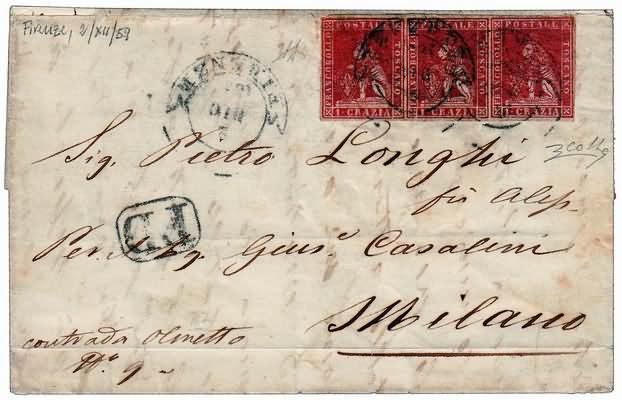 Firenze, 2/XII/59
FIRENZE
DIC
FRANCOBOLLO POSTALE TOSCANO 1 CRAZIA
FRANCOBOLLO POSTALE TOSCANO 1 CRAZIA
FRANCOBOLLO POSTALE TOSCANO 1 CRAZIA
Sig. Pietro Longhi
fù Aless.
Giusᵉ Casalini
Milano
contrada Olmetto
Nº 9
P.D